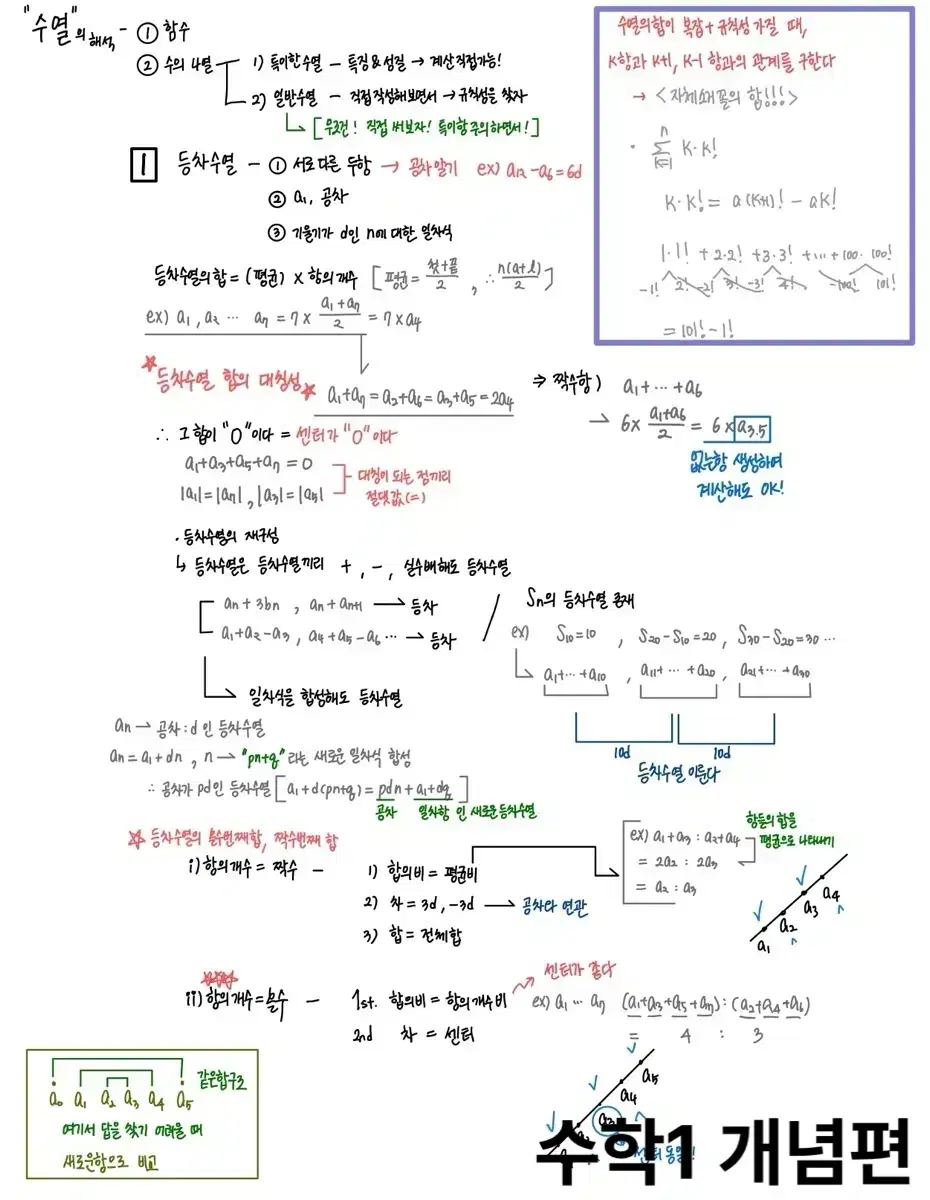 "수열"의 해석 - ① 함수
② 수의 나열
1) 특이한 수열 - 특징 & 성질 → 계산 직접가능!
2) 일반수열 - 직접 작성해보면서 → 규칙성을 찾자
[무조건! 직접 써보자! 특이항 주의하면서!]
수열의 합이 복잡 + 규칙성 가질 때,
K항과 K+1, K-1 항과의 관계를 구한다
→ <자체소거꼴의 합!!!>
· \sum_{k=1}^{n} K·K!
K·K! = a(K+1)! - aK!
1·1! + 2·2! + 3·3! + ... + 100·100!
-1! 2! -2! 3! -3! 4! -100! 101!
= 101! - 1!
1 등차수열 - ① 서로 다른 두항 → 공차 알기 ex) a₁₂ - a₆ = 6d
② a₁, 공차
③ 기울기가 d인 n에 대한 일차식
등차수열의 합 = (평균) × 항의 개수 [평균 = 첫+끝/2, ∴ n(a+l)/2]
ex) a₁, a₂ ... a₇ = 7 × (a₁+a₇)/2 = 7 × a₄
☆등차수열 합의 대칭성☆
a₁+a₇ = a₂+a₆ = a₃+a₅ = 2a₄
⇒ 짝수항) a₁ + ... + a₆
→ 6 × (a₁+a₆)/2 = 6 × a₃.₅
없는항 생성하여
계산해도 OK!
∴ 그 합이 "0"이다 = 센터가 "0"이다
a₁+a₃+a₅+a₇ = 0
|a₁| = |a₇|, |a₃| = |a₅|
대칭이 되는 점끼리
절댓값(=)
· 등차수열의 재구성
↳ 등차수열은 등차수열끼리 +, -, 실수배해도 등차수열
aₙ + 3bₙ, aₙ + aₙ₊₁ → 등차
a₁+a₂-a₃, a₄+a₅-a₆ ... → 등차
Sₙ의 등차수열 존재
ex) S₁₀=10, S₂₀-S₁₀=20, S₃₀-S₂₀=30 ...
a₁+...+a₁₀, a₁₁+...+a₂₀, a₂₁+...+a₃₀
10d 10d
등차수열 이룬다
일차식을 합성해도 등차수열
aₙ → 공차 : d인 등차수열
aₙ = a₁+dn, n → "pn+q"라는 새로운 일차식 합성
∴ 공차가 pd인 등차수열 [a₁+d(pn+q) = pdn + a₁+dq]
공차 일차항 인 새로운 등차수열
☆ 등차수열의 홀수번째합, 짝수번째 합
i) 항의개수 = 짝수 -
1) 합의비 = 평균비
2) 차 = 3d, -3d → 공차와 연관
3) 합 = 전체합
ex) a₁+a₃ : a₂+a₄
= 2a₂ : 2a₃
= a₂ : a₃
항들의 합을
평균으로 나타내기
a₁ a₂ a₃ a₄
ii) 항의개수 = 홀수 -
1st. 합의비 = 항의개수비
센터가 좋다
2nd 차 = 센터
ex) a₁ ... a₇ (a₁+a₃+a₅+a₇) : (a₂+a₄+a₆)
= 4 : 3
a₃ a₄ a₅
센터 동일!
a₀ a₁ a₂ a₃ a₄ a₅
같은합구조
여기서 답을 찾기 어려울 때
새로운항으로 비교
수학1 개념편